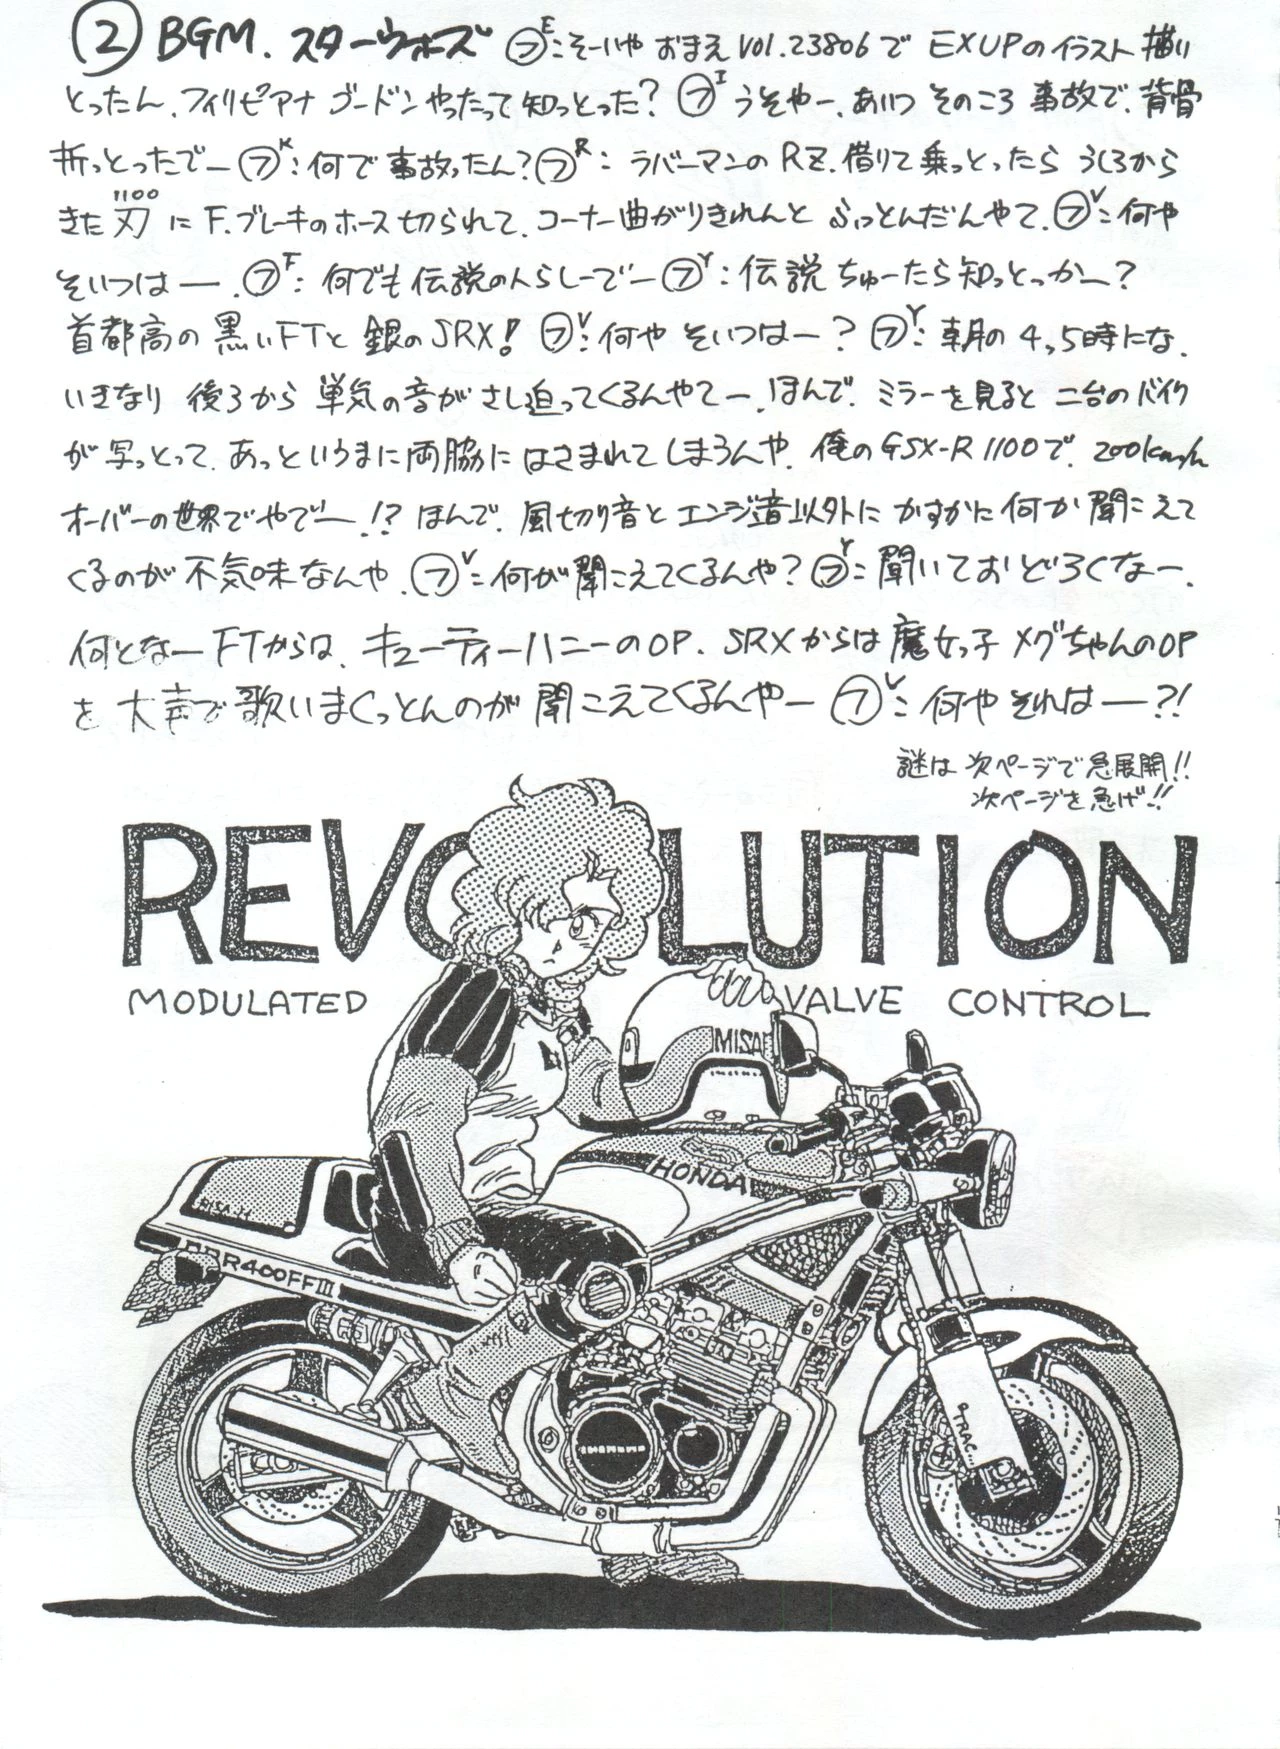 ② BGM. スターウォーズ ㋫E:そーいや おまえ Vol.23806で EXUPのイラスト描い
とったん、フィリピアナ ゴードンやったって知っとった? ㋫I うそやー、あいつ そのころ 事故で、背骨
折っとったでー ㋫K:何で事故ったん?㋫R: ラバーマンのRZ.借りて乗っとったら うしろから
きた刃1100にF.ブレーキのホース切られて、コーナー曲がりきれんと ふっとんだんやて、㋫V:何や
そいつはー. ㋫F: 何でも伝説の人らしーでー ㋫Y:伝説 ちゅーたら知っとっかー?
首都高の黒いFTと 銀のSRX! ㋫V:何や そいつはー? ㋫Y: 朝の4,5時にな、
いきなり 後ろから 単気の音が さし迫ってくるんやてー、ほんで、ミラーを見ると 二台のバイク
が写っとって、あっというまに両脇に はさまれてしまうんや、俺のGSX-R 1100で、200km/h
オーバーの世界でやでー!? ほんで、風切り音と エンジン音以外に かすかに何か聞こえて
くるのが 不気味なんや、㋫V:何が聞こえてくるんや? ㋫Y:聞いておどろくなー、
何となーFTからは、キューティーハニーのOP. SRXからは魔女っ子 メグちゃんのOP
を大声で歌いまくっとんのが 聞こえてくるんやー ㋫V:何やそれはー?!
謎は次ページで急展開!!
次ページを急げ!!
REVOLUTION
MODULATED VALVE CONTROL
MISA
HONDA
R400FFIII
TRAC